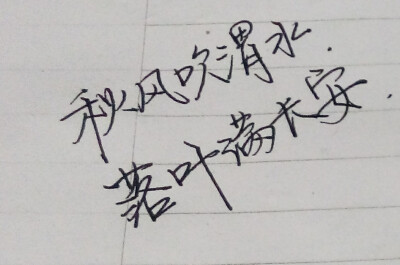 秋风吹渭水.
落叶满长安.